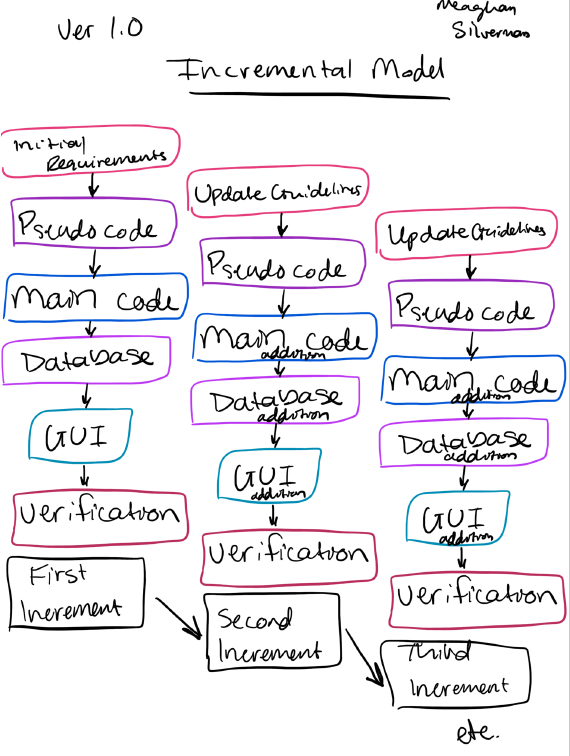 Ver 1.0
Meaghan
Silverman
Incremental Model
Initial
Requirements
Pseudo code
Main code
Database
GUI
Verification
First
Increment
Update Guidelines
Pseudo code
Main code
addition
Database
addition
GUI
addition
Verification
Second
Increment
Update Guidelines
Pseudo code
Main code
addition
Database
addition
GUI
addition
Verification
Third
Increment
etc.